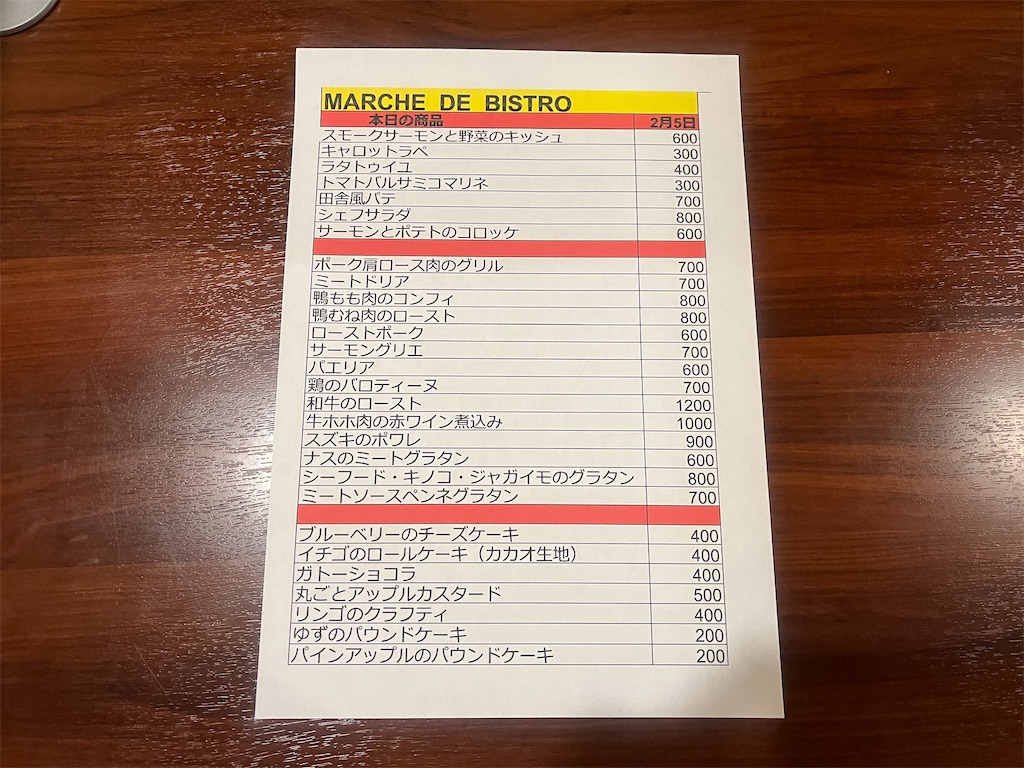 MARCHE DE BISTRO
本日の商品 2月5日
スモークサーモンと野菜のキッシュ 600
キャロットラペ 300
ラタトゥイユ 400
トマトバルサミコマリネ 300
田舎風パテ 700
シェフサラダ 800
サーモンとポテトのコロッケ 600
ポーク肩ロース肉のグリル 700
ミートドリア 700
鴨もも肉のコンフィ 800
鴨むね肉のロースト 800
ローストポーク 600
サーモングリエ 700
パエリア 600
鶏のバロティーヌ 700
和牛のロースト 1200
牛ホホ肉の赤ワイン煮込み 1000
スズキのポワレ 900
ナスのミートグラタン 600
シーフード・キノコ・ジャガイモのグラタン 800
ミートソースペンネグラタン 700
ブルーベリーのチーズケーキ 400
イチゴのロールケーキ（カカオ生地） 400
ガトーショコラ 400
丸ごとアップルカスタード 500
リンゴのクラフティ 400
ゆずのパウンドケーキ 200
パインアップルのパウンドケーキ 200